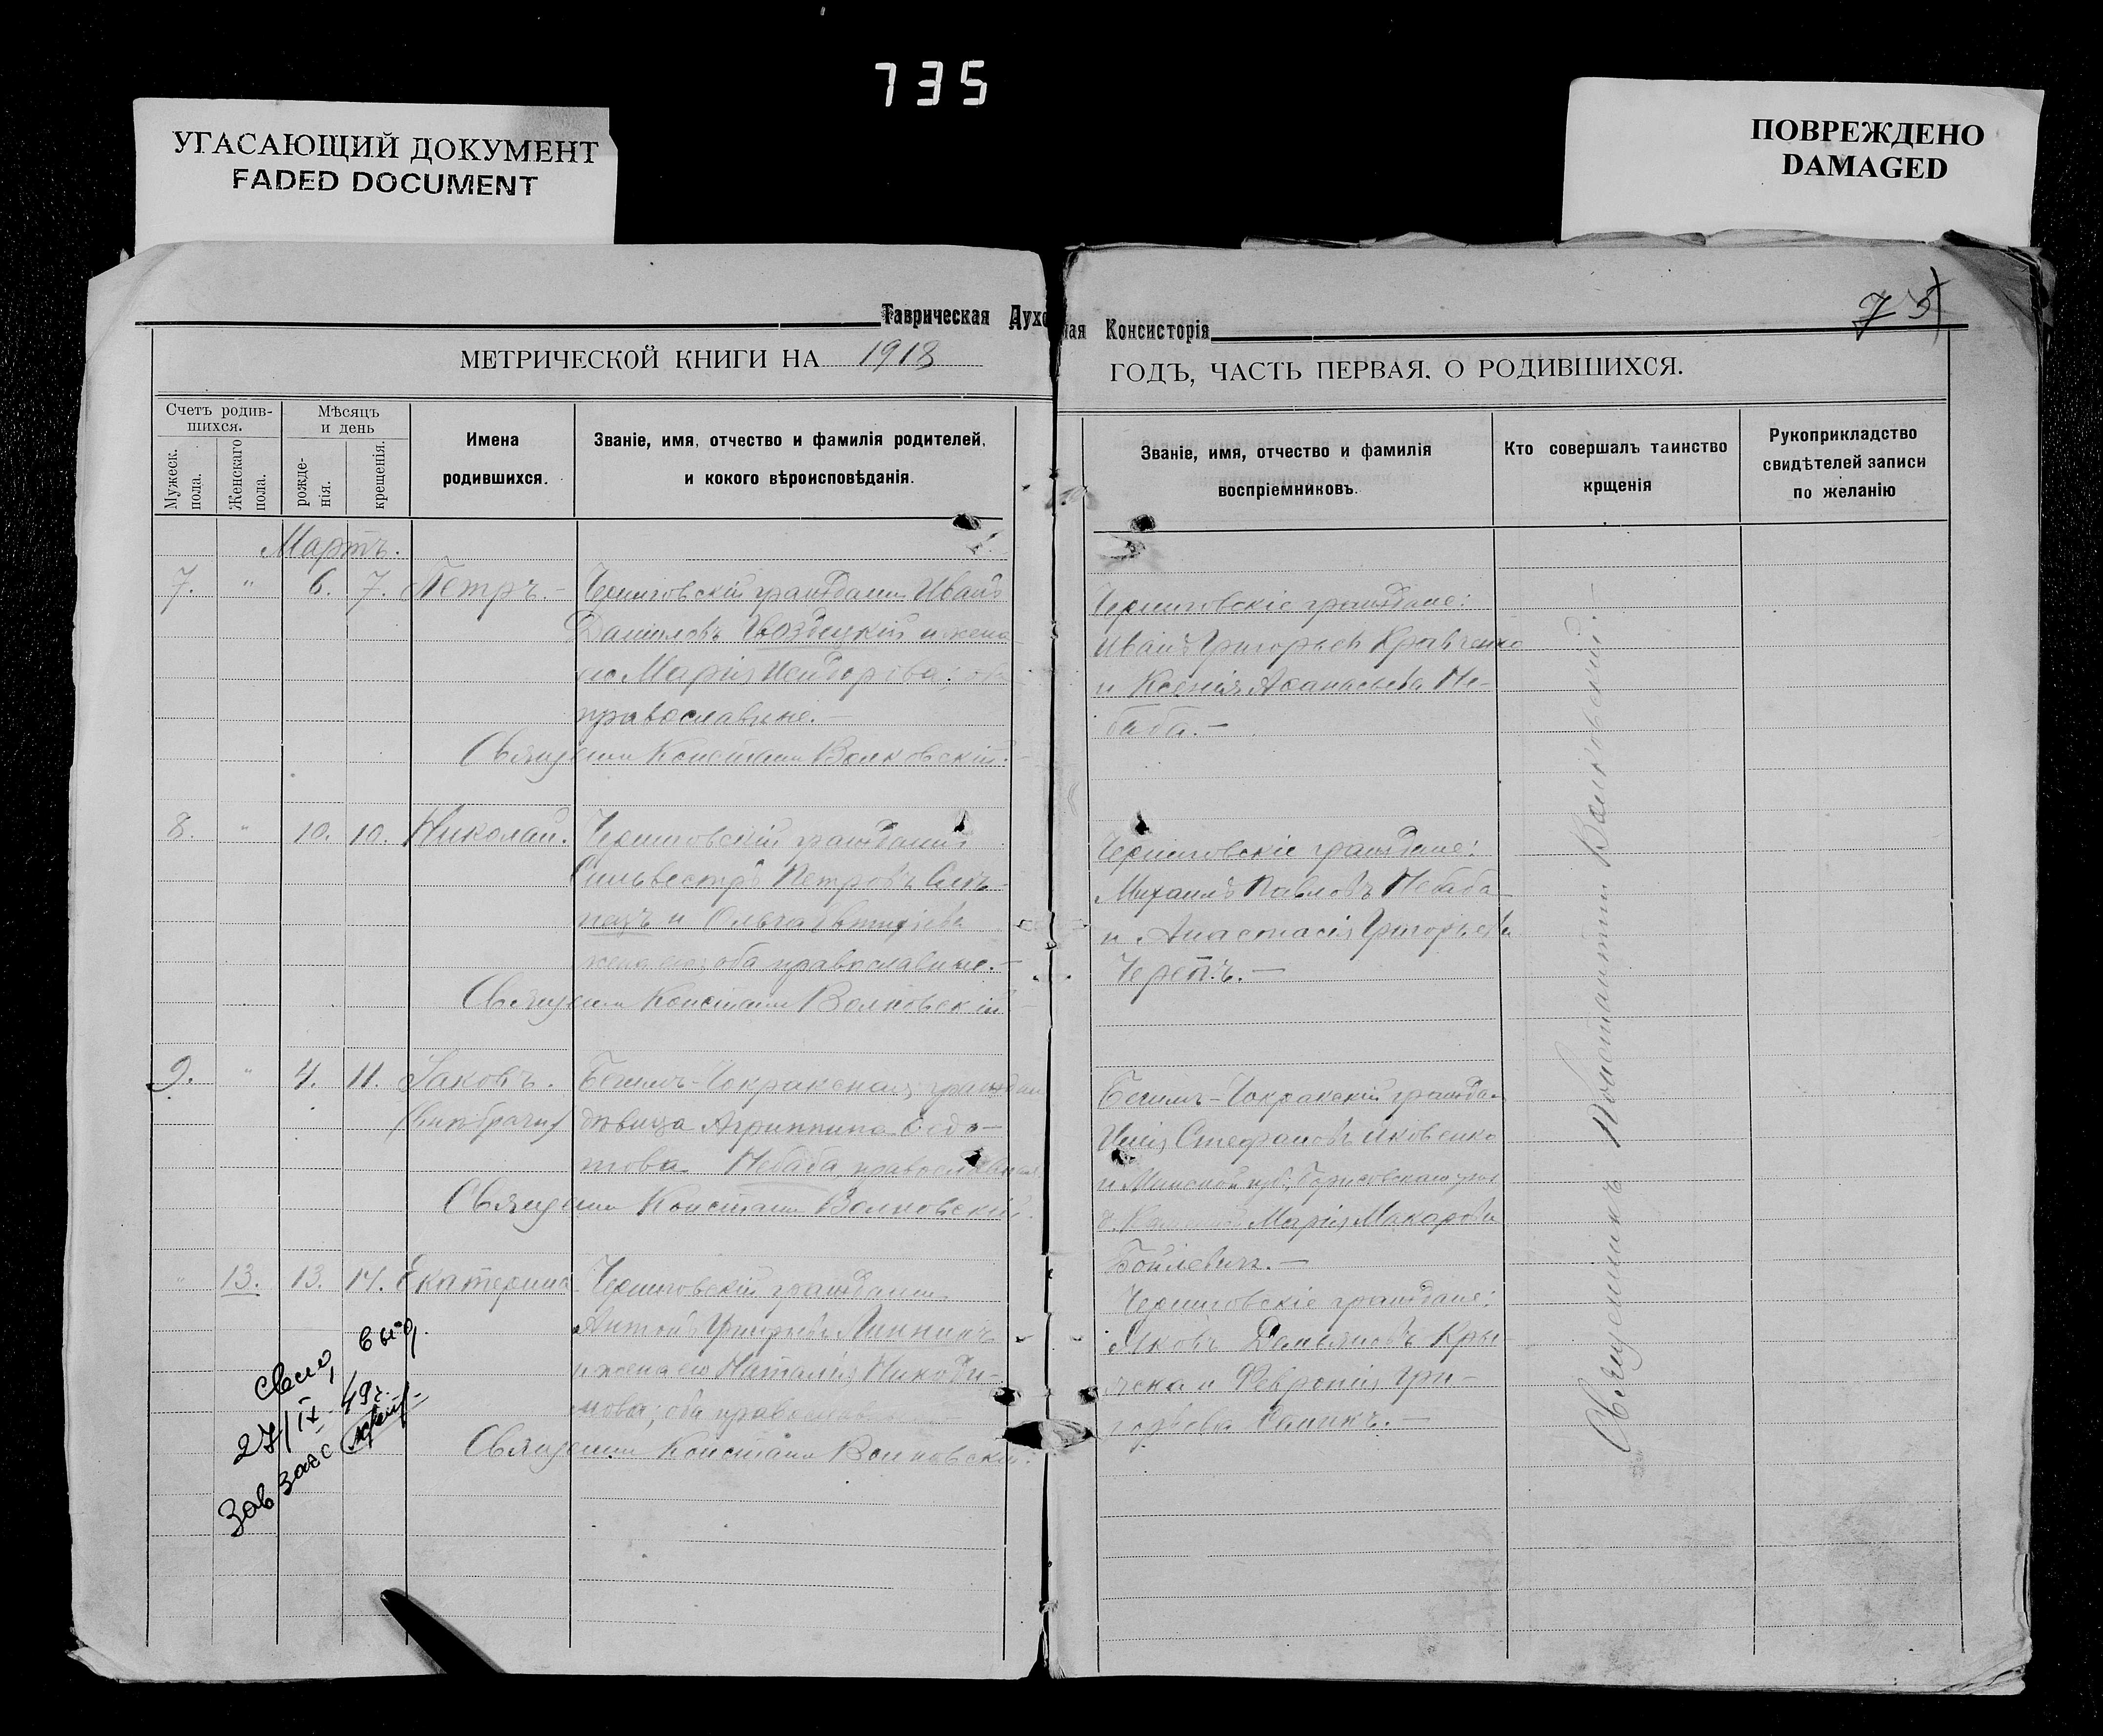 735
УГАСАЮЩИЙ ДОКУМЕНТ
FADED DOCUMENT
ПОВРЕЖДЕНО
DAMAGED
Таврическая Духо
ная Консисторія
75
МЕТРИЧЕСКОЙ КНИГИ НА 1918
ГОДЪ, ЧАСТЬ ПЕРВАЯ, О РОДИВШИХСЯ.
Счетъ родив-
шихся.
Мужеск.
пола.
Женскаго
пола.
Мѣсяцъ
и день
рожде-
нія.
крещенія.
Имена
родившихся.
Званіе, имя, отчество и фамилія родителей,
и кокого вѣроисповѣданія.
Званіе, имя, отчество и фамилія
воспріемниковъ.
Кто совершалъ таинство
крщенія
Рукоприкладство
свидѣтелей записи
по желанію
Мартъ.
7. " 6. 7. Петръ. – Черниговскій гражданинъ Иванъ
Даниловъ Гвоздицкій и жена
его Марія Исидорова;
православные. –
Священникъ Константинъ Волковскій. –
Черниговскіе граждане:
Иванъ Григорьевъ Кравченко
и Ксенія Аѳанасьева Не-
баба. –
8. " 10. 10. Николай. Черниговскій гражданинъ
Сильвестръ Петровъ
и Ольга
жена его; оба православные. –
Священникъ Константинъ Волковскій
Черниговскіе граждане:
Михаилъ Павловъ Небаба
и Анастасія Григорьева
Черепъ. –
9. " 4. 11. Іаковъ. –Чокракская граждан
(внѣбрачн) дѣвица Агриппина Ѳедо–
това Небаба, православная
Священникъ Константинъ Волковскій.
–Чокракскій граждан
Илія Стефановъ Яковенко
и Минской губ., Борисовскаго уѣзд
Марія Макарова
" 13. 13. 14. Екатерина. Черниговскій гражданинъ
Антонъ Линникъ
и жена его Наталія Никоди–
мова; оба православ
Священникъ Константинъ Волковскій.
Черниговскіе граждане:
Яковъ Демьяновъ Кры–
и Февронія Гри–
горьева
Священникъ Константинъ Волковскій. –
выд.
27/IX–49г.
Зав загс